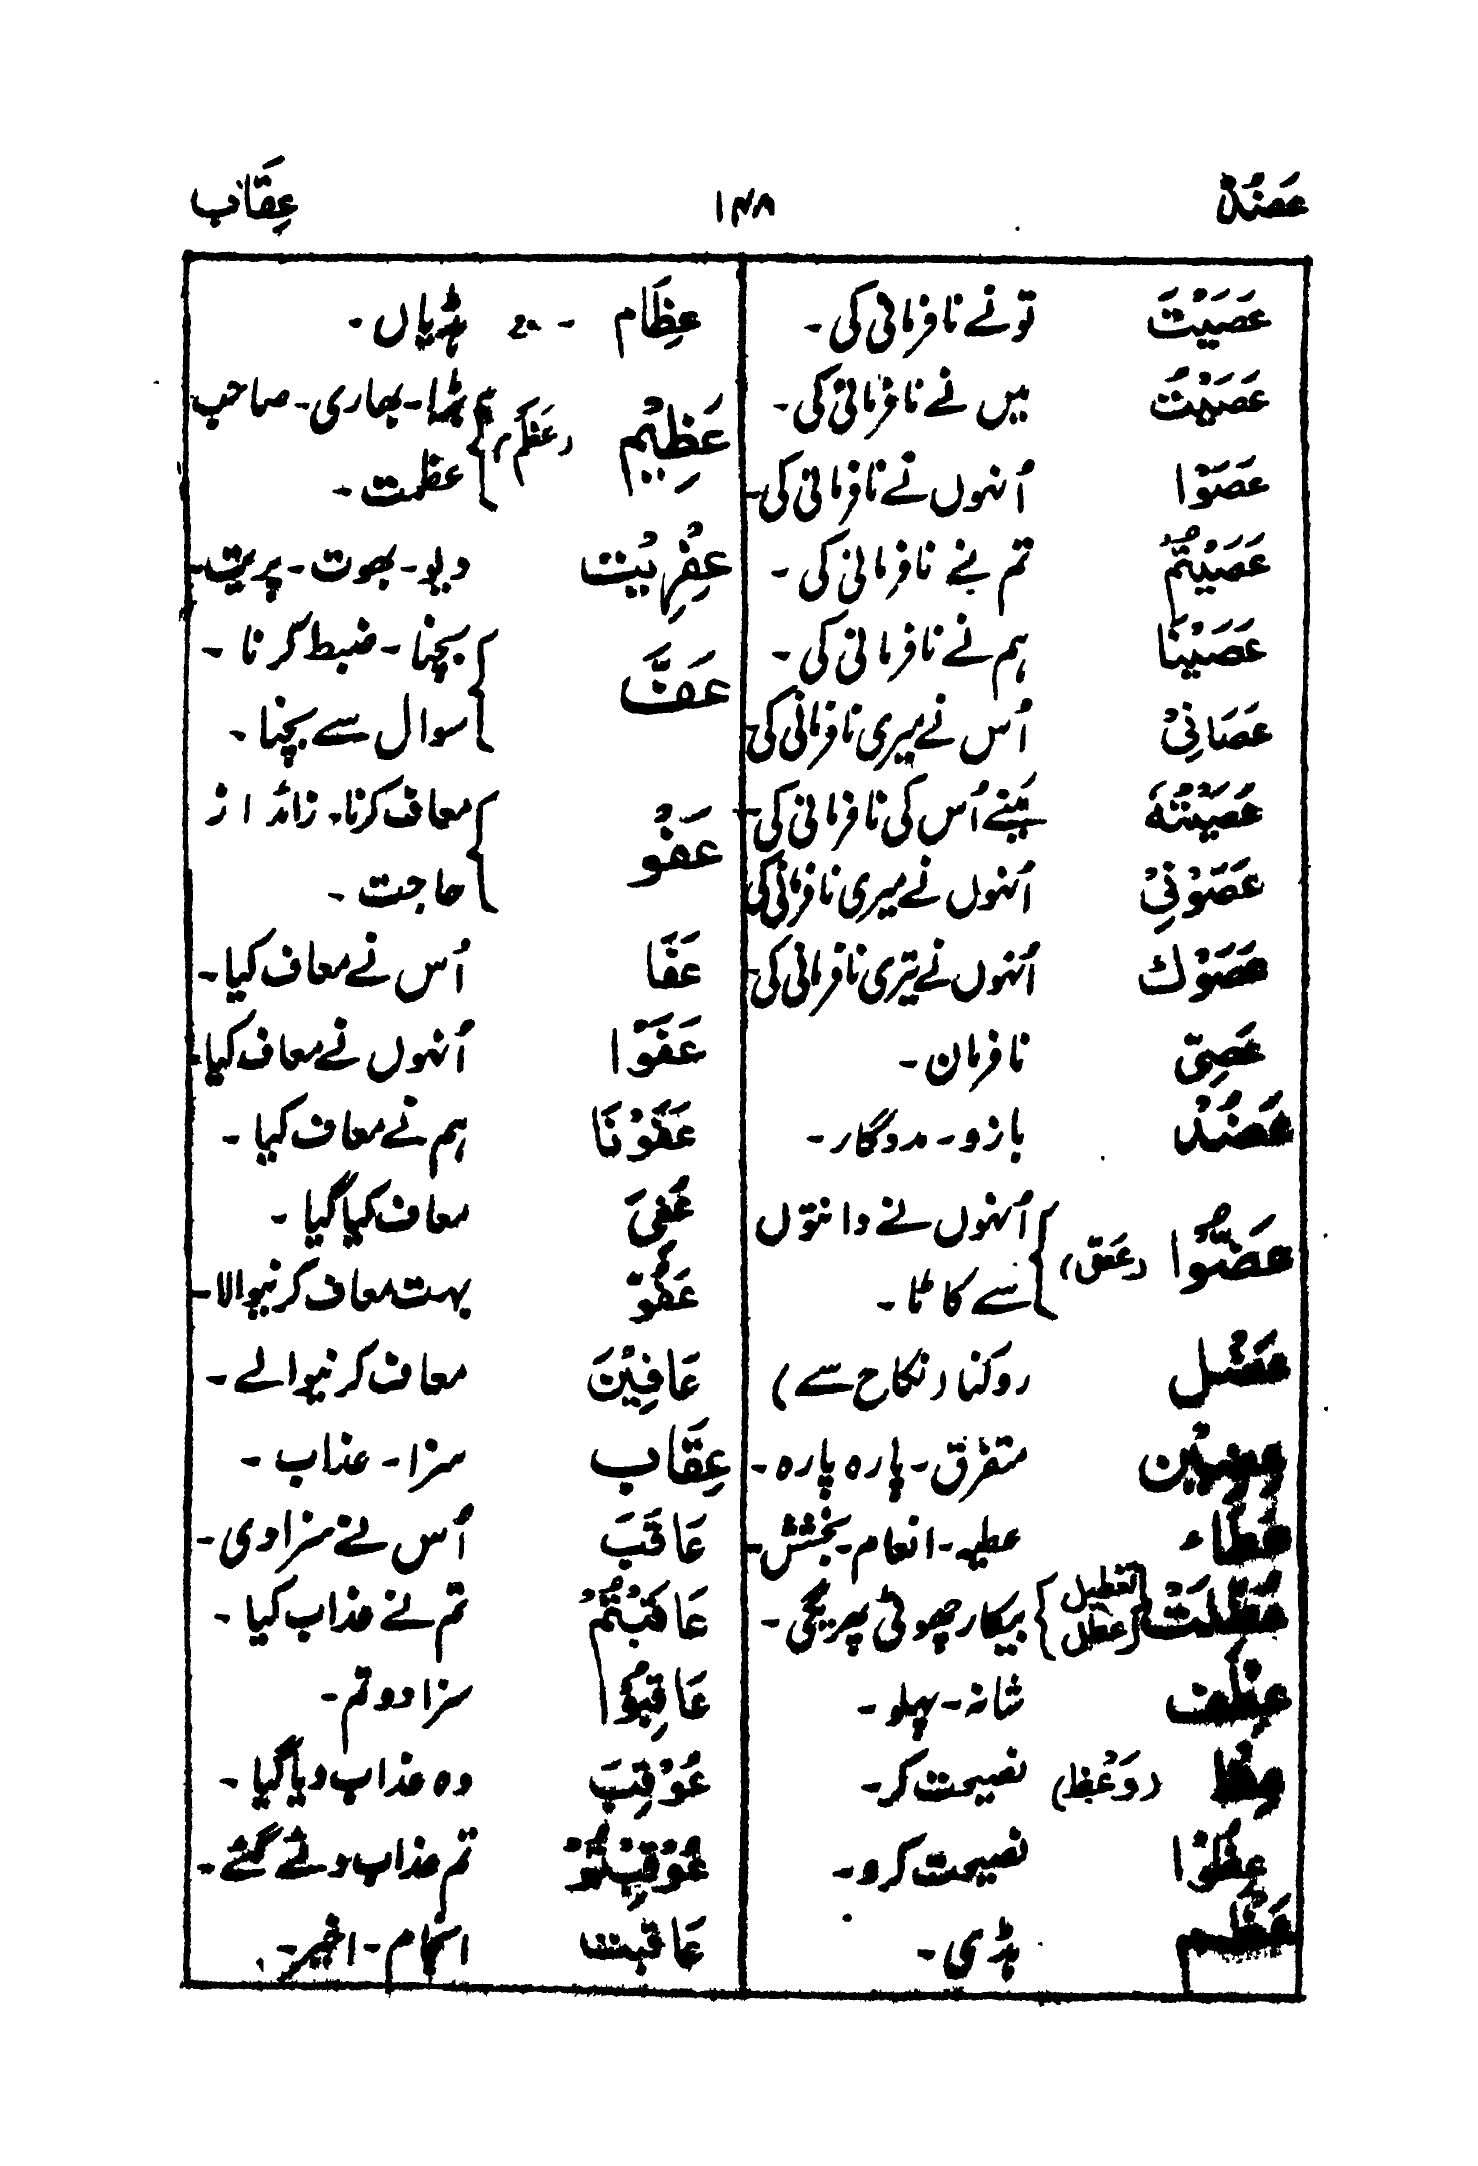 عَضُدٌ ۱۴۸ عِقَاب
عَصَيْتَ تو نے نافرمانی کی۔
عَصَيْتُ میں نے نافرمانی کی۔
عَصَوْا اُنہوں نے نافرمانی کی۔
عَصَيْتُمْ تم نے نافرمانی کی۔
عَصَيْنَا ہم نے نافرمانی کی۔
عَصَانِيْ اُس نے میری نافرمانی کی
عَصَيْتُهٗ مَیں نے اُس کی نافرمانی کی۔
عَصَوْنِيْ اُنہوں نے میری نافرمانی کی
عَصَوْك اُنہوں نے تیری نافرمانی کی
عَصِيّ نافرمان۔
عَضُدْ بازو۔ مددگار۔
عَضُّوْا (عض) اُنہوں نے دانتوں
سے کاٹا۔
عَضْل روکنا (نکاح سے)
عِضِيْن متفرق۔ پارہ پارہ۔
عَطَاء عطیہ۔ انعام۔ بخشش۔
عُطِّلَتْ (تعطیل عطل) بیکار چھوٹی پھریگی۔
عِطْف شانہ۔ پہلو۔
عِظْ (وَعْظ) نصیحت کر۔
عِظُوْا نصیحت کرو۔
عَظْم ہڈی۔
عِظَام ۔ ہڈیاں۔
عَظِيْم (عظم) بڑا۔ بھاری۔ صاحب
عظمت۔
عِفْرِيْت دیو۔ بھوت۔ پریت۔
عَفَّ بچنا۔ ضبط کرنا۔
سوال سے بچنا۔
عَفْو معاف کرنا۔ زائد از
حاجت۔
عَفَا اُس نے معاف کیا۔
عَفَوْا اُنہوں نے معاف کیا۔
عَفَوْنَا ہم نے معاف کیا۔
عُفِيَ معاف کیا گیا۔
عَفُوّ بہت معاف کرنیوالا۔
عَافِيْنَ معاف کرنیوالے۔
عِقَاب سزا۔ عذاب۔
عَاقَبَ اُس نے سزا دی۔
عَاقَبْتُمْ تم نے عذاب کیا۔
عَاقِبُوْا سزا دو تم۔
عُوْقِبَ وہ عذاب دیا گیا۔
عُوْقِبْتُمْ تم عذاب دئے گئے۔
عَاقبت انجام۔ اخیر۔